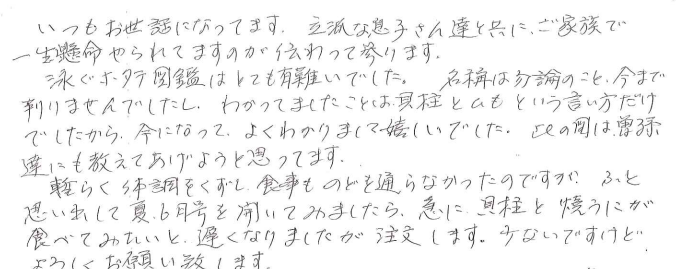 いつもお世話になってます。立派な息子さん達と共に、ご家族で
一生懸命やられてますのが伝わって参ります。
泳ぐホタテ図鑑はとても有難いでした。名称は勿論のこと、今まで
判りませんでしたし、わかってましたことは、貝柱とひもという言い方だけ
でしたから、今になって、よくわかりまして嬉しいでした。この図は、曽孫
達にも教えてあげようと思ってます。
軽らく体調をくずし、食事ものどを通らなかったのですが、ふと
思い出して夏、6月号を開いてみましたら、急に、貝柱と焼うにが
食べてみたいと、遅くなりましたが注文します。少ないですけど
よろしくお願い致します。